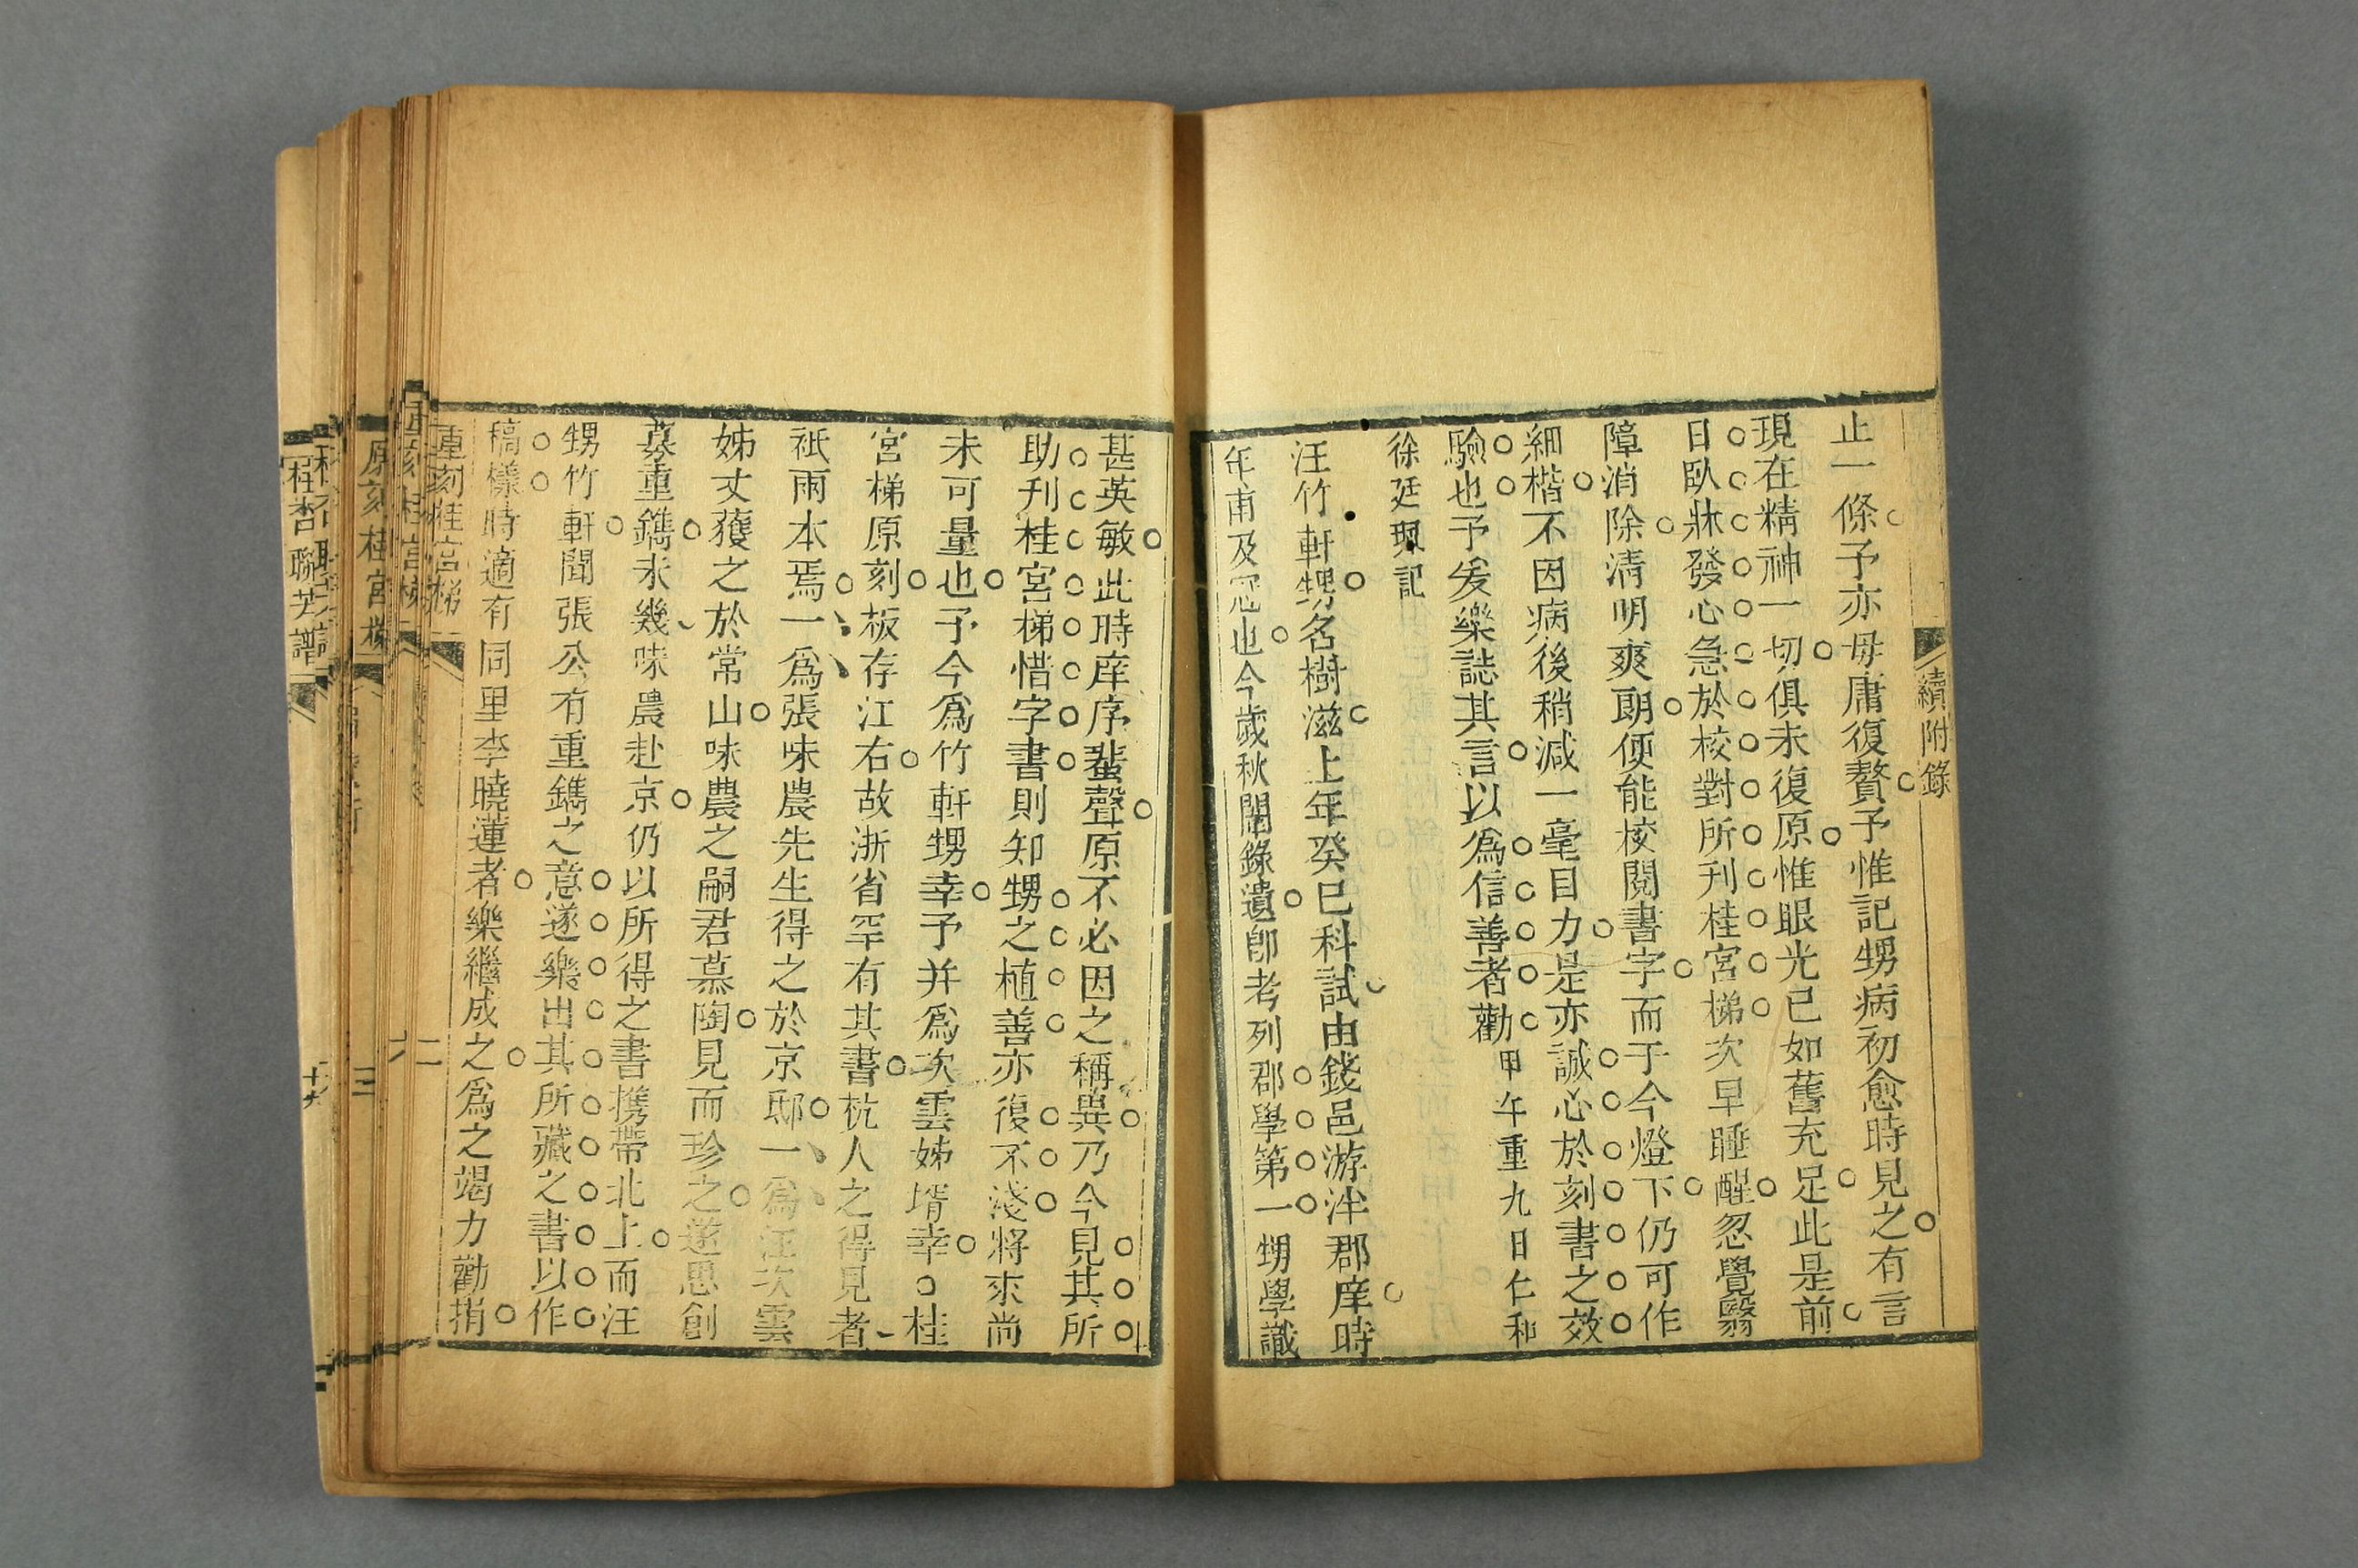 續附錄
止一條予亦毋庸復贅予惟記甥病初愈時見之有言
現在精神一切俱未復原惟眼光已如舊充足此是前
日臥牀發心急於校對所刊桂宮梯次早睡醒忽覺翳
障消除清明爽朗便能校閱書字而于今燈下仍可作
細楷不因病後稍減一毫目力是亦誠心於刻書之效
驗也予爰樂誌其言以爲信善者勸甲午重九日仁和
徐廷珮記
汪竹軒甥名樹滋上年癸巳科試由錢邑游泮郡庠時
年甫及冠也今歲秋闈錄遺卽考列郡學第一甥學識
甚英敏此時庠序蜚聲原不必因之稱異乃今見其所
助刋桂宮梯惜字書則知甥之植善亦復不淺將來尚
未可量也予今爲竹軒甥幸予并爲次雲姊壻幸○桂
宮梯原刻板存江右故浙省罕有其書杭人之得見者
祇兩本焉一爲張味農先生得之於京邸一爲汪次雲
姊丈獲之於常山味農之嗣君慕陶見而珍之遂思創
募重鐫未幾味農赴京仍以所得之書携帶北上而汪
甥竹軒聞張公有重鐫之意遂樂出其所藏之書以作
稿樣時適有同里李曉蓮者樂繼成之爲之竭力勸捐
重刻桂宮梯
二
重刻桂宮梯
六
原刻桂宮梯
三
桂杏聯芳譜
十九